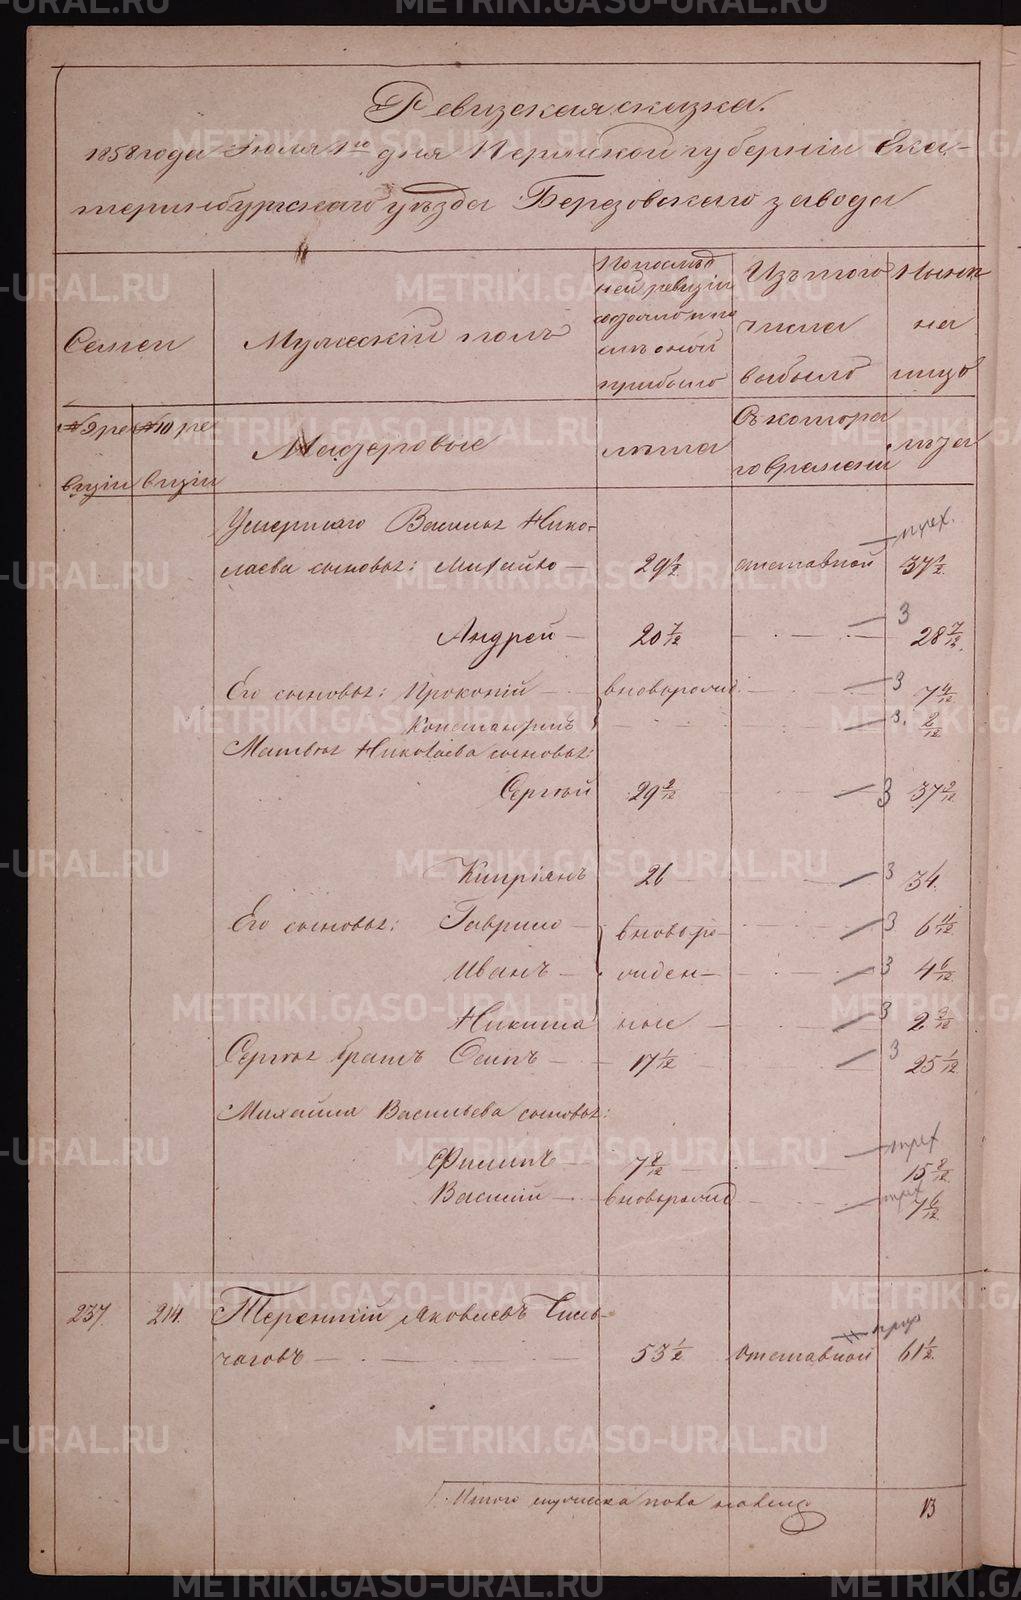 Ревизская сказка.
1858 года Июля 1го дня Пермской губернiи Ека-
теринбургскаго уѣзда Березовскаго завода
Семеи
Мужескiй полъ
По послѣд
ней ревизiи
состояло и по
слѣ оной
прибыло
Изъ того
числа
выбыло
Нынѣ
на
лицо
№ 9 ре
визiи
№ 10 ре
визiи
Мастеровые
лѣта
Съ котора
го времени
лѣта
Умершаго Василья Нико-
лаева сыновья: Михайло — 29 1/2 отставной 37 1/2
Андрей — 20 7/12 3 28 7/12.
Его сыновья: Прокопiй — вноворожд. 3 7 4/12
Константинъ 3. 2/12
Матвея Николаева сыновья:
Сергѣй 29 2/12 3 37 2/12
Кипрiянъ 26 3 34.
Его сыновья: Гаврило — вноворо- 3 6 11/12
Иванъ — жден- 3 4 6/12
Никита ные 3 2 3/12
Сергѣя братъ Осипъ — 17 1/12 3 25 1/12
Михайла Васильева сыновья:
Филипъ — 7 2/12 15 2/12
Василiй — вноворожд 7 6/12
237. 214. Терентiй Яковлевъ
чаговъ — 53 1/2 отставной 61 1/2.
Итого мужеска пола налицо 13
METRIKI.GASO-URAL.RU